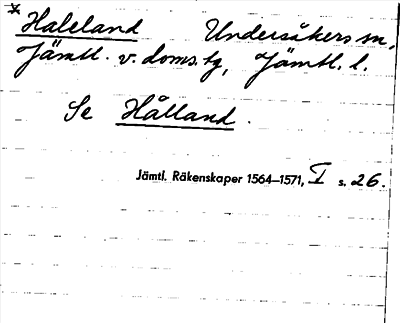 * Haleland Undersåkers sn,
Jämtl. v. doms. tg, Jämtl. l.
Se Hålland.
Jämtl. Räkenskaper 1564–1571, I s. 26.